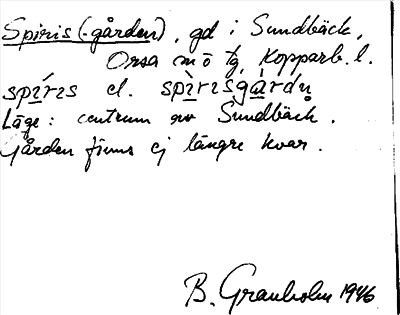 Spiris (-gården), gd i Sundbäck,
Orsa sn o tg, Kopparb. l.
spírɪs el. spìrɪsgàrdn̥
Läge: centrum av Sundbäck.
Gården finns ej längre kvar.
B. Granholm 1946